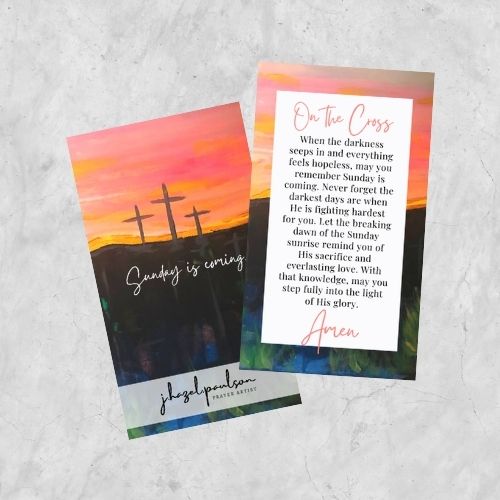 Sunday is coming
j.hazel.paulson
PRAYER ARTIST
On the Cross
When the darkness
seeps in and everything
feels hopeless, may you
remember Sunday is
coming. Never forget the
darkest days are when
He is fighting hardest
for you. Let the breaking
dawn of the Sunday
sunrise remind you of
His sacrifice and
everlasting love. With
that knowledge, may you
step fully into the light
of His glory.
Amen